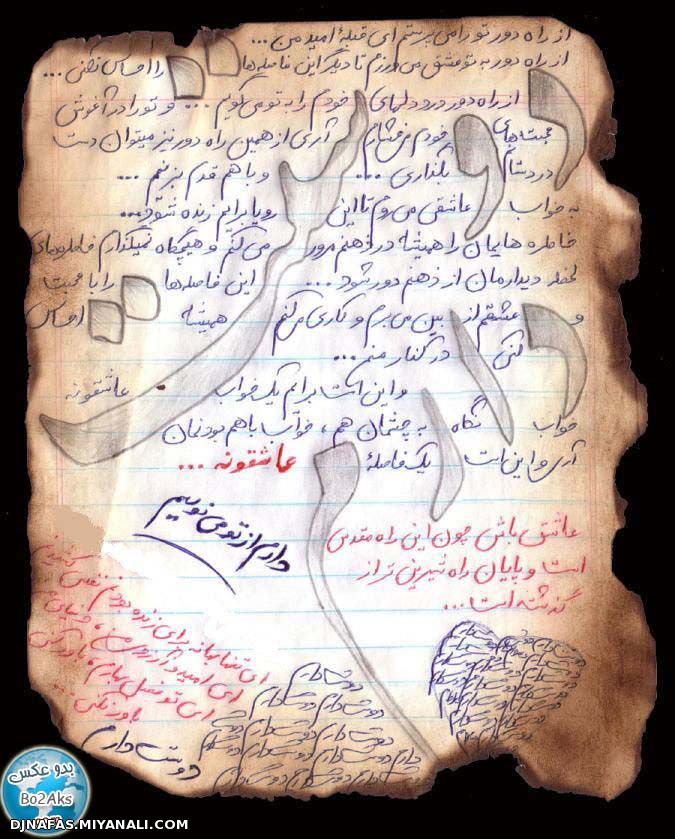 از راه دور تو را می پرستم ای قبلهٔ امید من ...
از راه دور به تو عشق می ورزم تا دیگر این فاصله ها را احساس نکنی ...
از راه دور درد دلهای خودم را به تو می گویم ... و تو را در آغوش
محبتهای خودم می فشارم آری از همین راه دور نیز میتوان دست
در دستانم بگذاری ... و با هم قدم بزنیم ...
به خواب عاشقی می روم تا این رویا برایم زنده شود ...
خاطره هایمان را همیشه در ذهنم مرور می کنم و هیچگاه نمیگذارم خاطره های
لحظه دیدارمان از ذهنم دور شود ... این فاصله ها را با محبت
و عشقم از بین می برم و کاری می کنم همیشه احساس
کنی در کنار منم ...
و این است برایم یک خواب عاشقونه
خواب نگاه به چشمان هم ، خواب با هم بودنمان
آری و این است یک فاصلهٔ عاشقونه ...
دارم از تو می نویسم
عاشق باش چون این راه مقدس
است و پایان راه شیرین تر از
گذشته است ...
ای تنها بهانه برای زنده بودنم نفس کشیدنم
ای امید و آرزوی من
باور نکن ...
دوستت دارم
دوستت دارم
بدو عکس
Bo2Aks
DJNAFAS.MIYANALI.COM